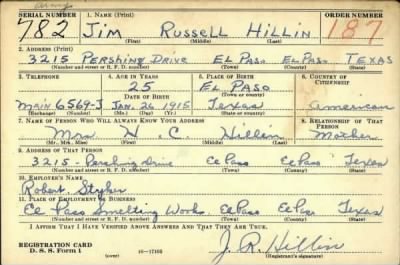 Army
SERIAL NUMBER 1. NAME (Print) ORDER NUMBER
782 JIM RUSSELL HILLIN 187
(First) (Middle) (Last)
2. ADDRESS (Print)
3215 PERSHING DRIVE EL PASO EL PASO TEXAS
(Number and street or R. F. D. number) (Town) (County) (State)
3. TELEPHONE 4. AGE IN YEARS 5. PLACE OF BIRTH 6. COUNTRY OF CITIZENSHIP
25 EL PASO
DATE OF BIRTH (Town or county)
Main 6569-J JAN. 26 1915 Texas American
(Exchange) (Number) (Mo.) (Day) (Yr.) (State or country)
7. NAME OF PERSON WHO WILL ALWAYS KNOW YOUR ADDRESS 8. RELATIONSHIP OF THAT PERSON
Mrs. H. C. Hillin Mother
(Mr., Mrs., Miss) (First) (Middle) (Last)
9. ADDRESS OF THAT PERSON
3215 - Pershing Drive El Paso El Paso Texas
(Number and street or R. F. D. number) (Town) (County) (State)
10. EMPLOYER'S NAME
Robert Stryker
11. PLACE OF EMPLOYMENT OR BUSINESS
El Paso Smelting Works. El Paso El Paso Texas
(Number and street or R. F. D. number) (Town) (County) (State)
I AFFIRM THAT I HAVE VERIFIED ABOVE ANSWERS AND THAT THEY ARE TRUE.
REGISTRATION CARD
D. S. S. Form 1 (over) 16—17105
J. R. Hillin
(Registrant's signature)